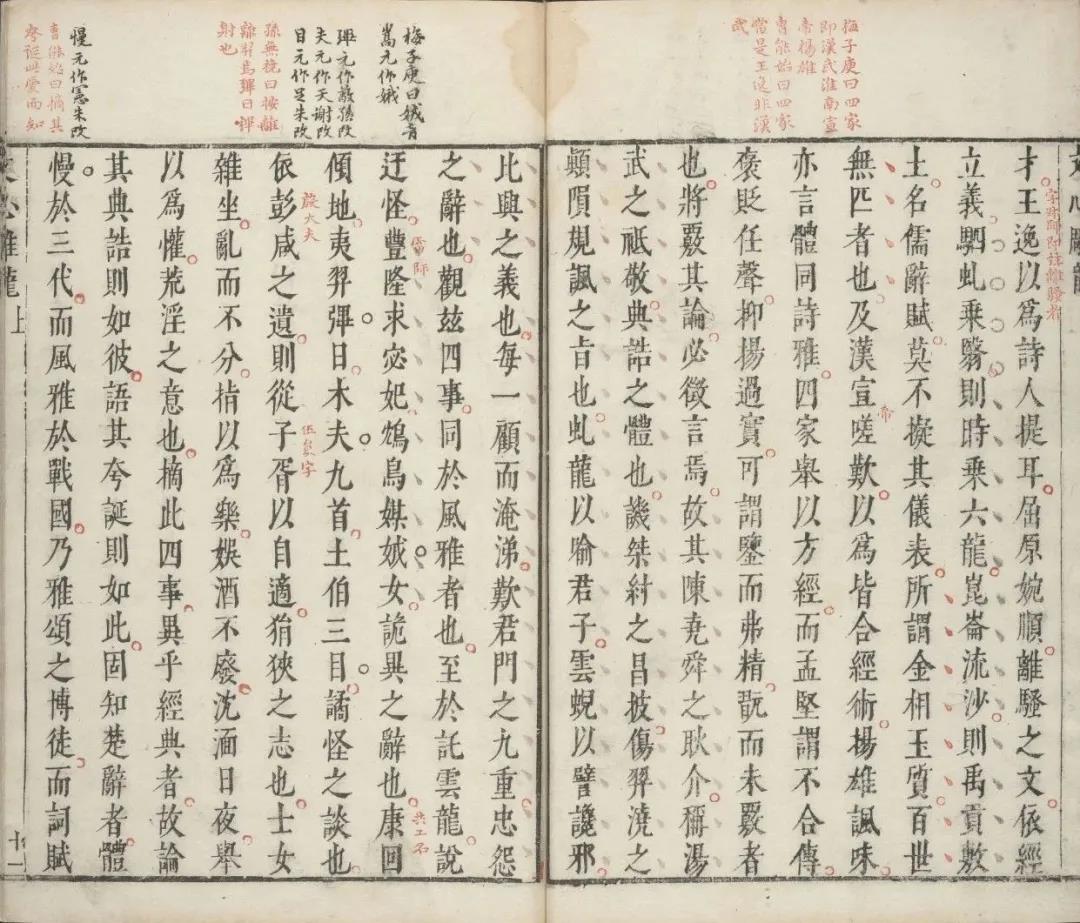 梅子庚曰四家
即漢武淮南宣
帝楊雄
曹能始曰四家
當是王逸非漢
武
才王逸以爲詩人提耳屈原婉順離騷之文依經
立義駟虬乗翳則時乗六龍崑崙流沙則禹貢敷
土名儒辭賦莫不擬其儀表所謂金相玉質百世
無匹者也及漢宣嗟歎以爲皆合經術揚雄諷味
帝
亦言體同詩雅四家舉以方經而孟堅謂不合傳
褒貶任聲抑揚過實可謂鑒而弗精翫而未覈者
也將覈其論必徵言焉故其陳堯舜之耿介稱湯
武之祗敬典誥之體也譏桀紂之昌披傷羿澆之
顚隕規諷之旨也虬龍以喻君子雲蜺以譬讒邪
梅子庚曰娥音
嵩元作娥
瑘元作蔽孫改
夫元作天謝改
目元作足朱改
孫無撓曰按離
騷羿焉彃日彃
射也
慢元作憲朱改
曹能始曰摘其
夸誕此愛而知
比興之義也每一顧而淹涕歎君門之九重忠怨
之辭也觀兹四事同於風雅者也至於託雲龍說
迂怪豐隆求宓妃鴆鳥媒娀女詭異之辭也康回
雷師
共工名
傾地夷羿彃日木夫九首土伯三目譎怪之談也
依彭咸之遺則從子胥以自適狷狹之志也士女
殷大夫
伍員字
雜坐亂而不分指以爲樂娛酒不廢沈湎日夜舉
以爲懽荒淫之意也摘此四事異乎經典者故論
其典誥則如彼語其夸誕則如此固知楚辭者體
慢於三代而風雅於戰國乃雅頌之博徒而詞賦
文心雕龍上
十一